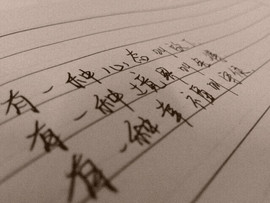 有一种心态叫放下
有一种境界叫
有一种幸福叫